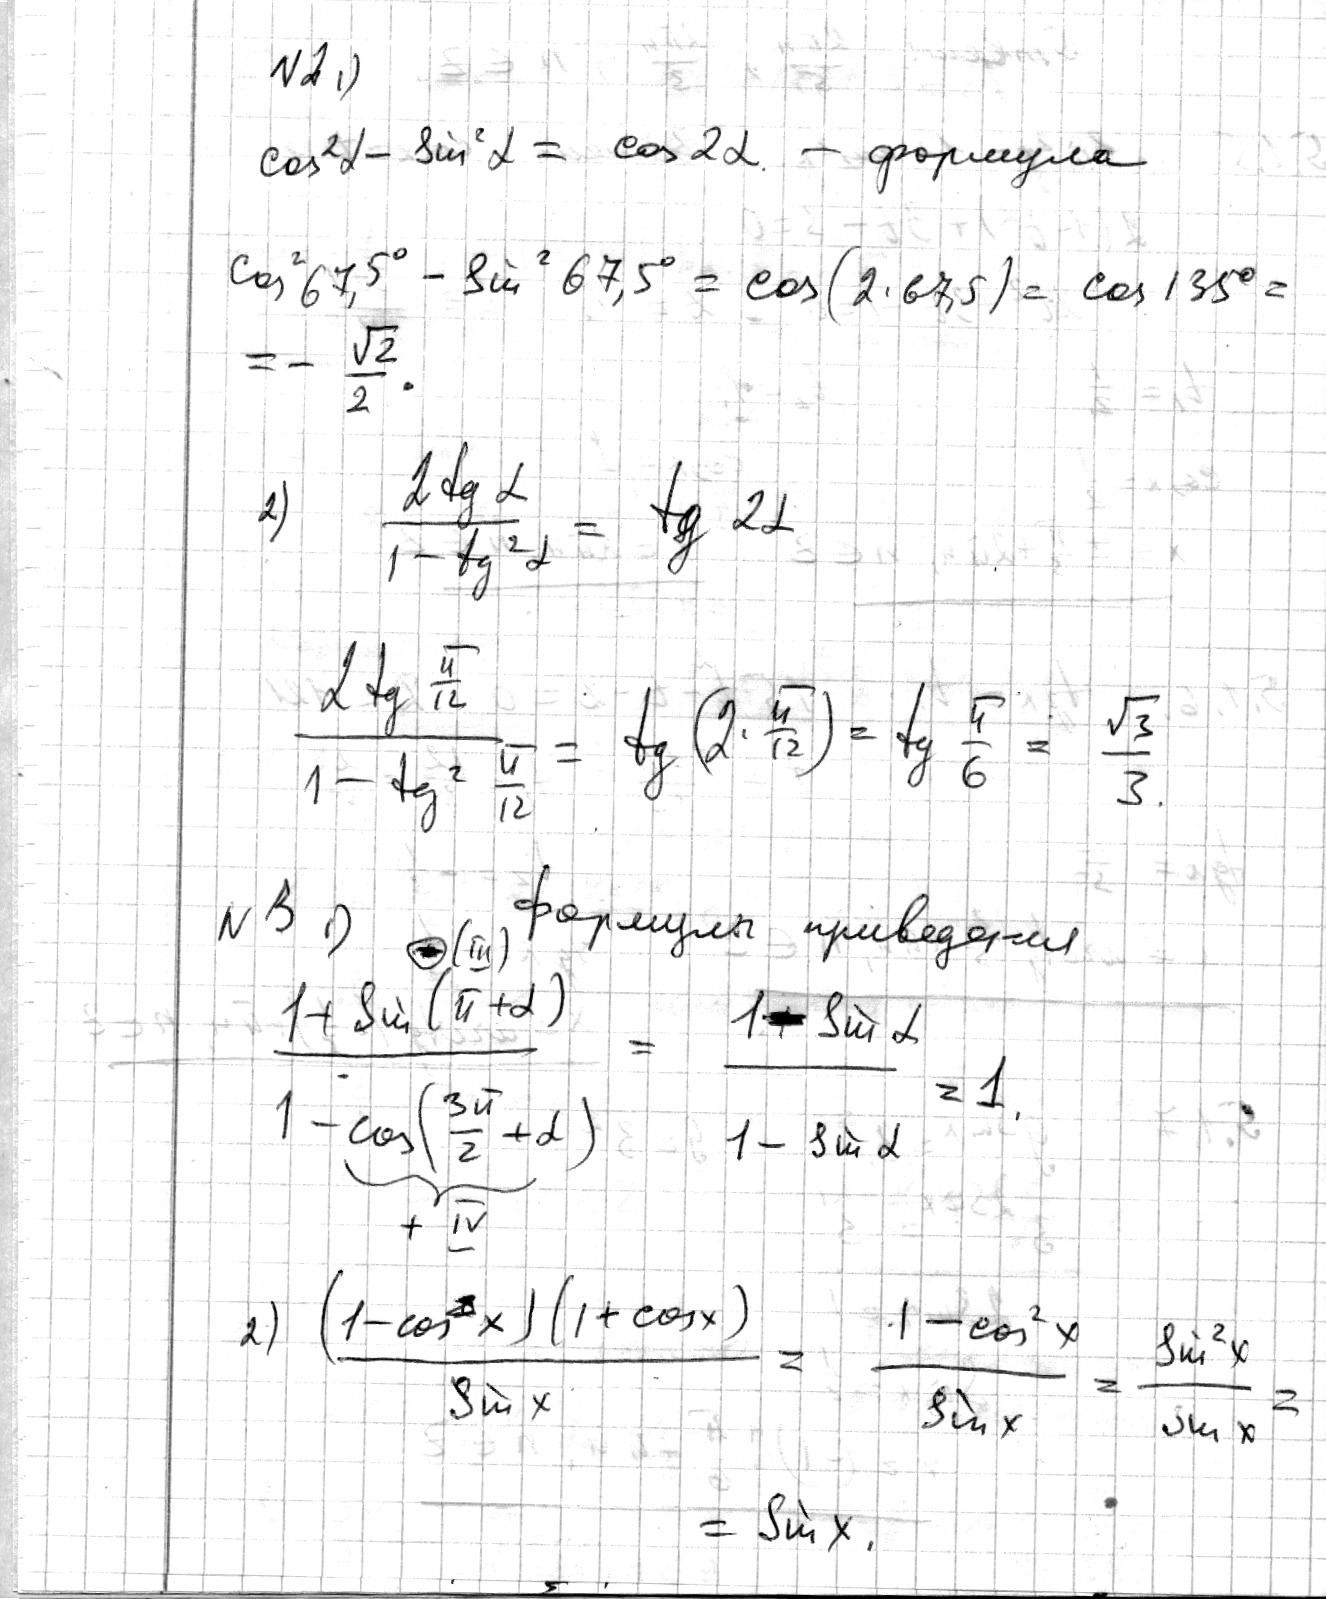 N2 1)
cos²α – sin²α = cos 2α. – формула
cos²67,5° – sin²67,5° = cos(2·67,5) = cos 135° =
= – √2/2.
2) (2 tg α)/(1 – tg²α) = tg 2α
(2 tg π/12)/(1 – tg² π/12) = tg(2·π/12) = tg π/6 = √3/3.
N3 1) формулы приведения
– (III)
(1 + sin(π + α))/(1 – cos(3π/2 + α)) = (1 – sin α)/(1 – sin α) = 1.
+ IV
2) ((1 – cos x)(1 + cos x))/(sin x) = (1 – cos²x)/(sin x) = (sin²x)/(sin x) =
= sin x.